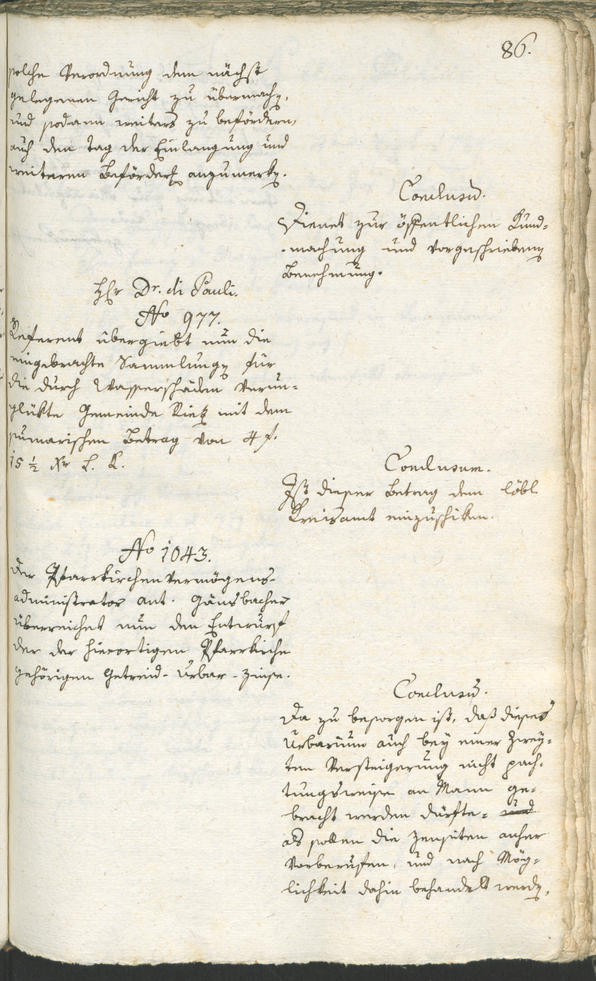 86.
solche Verordnung dem nächst
gelegenen Gericht zu übermachen,
und sodann weiters zu befördern,
auch den Tag der Einlangung und
weiteren Beförder anzumerken.
Conclusum.
Dienet zur öffentlichen Kund-
machung und vorgeschriebenen
Benehmung.
Hr Dr. di Pauli.
No 977.
Referent übergiebt nun die
eingebrachte Sammlungen für
die durch Wasserschäden verun-
glükte Gemeinde Rietz mit dem
sumarischen Betrag von 4 f.
15 ½ Xr
Conclusum.
Ist dieser Betrag dem löbl
Kreisamt einzuschiken.
No 1043.
Der Pfarrkirchenvermögens-
administrator Ant. Gänsbacher
überreichet nun den Entwurf
der der hierortigen Pfarrkirche
gehörigen Getreid-Urbar-Zinse.
Conclusum.
Da zu besorgen ist, daß dieses
Urbarium auch bey einer zwey-
ten Versteigerung nicht pach-
tungsweise an Mann ge-
bracht werden dürfte, und
als sollen die Zensiten anher
vorberufen, und nach Mög-
lichkeit dahin behandelt werden,